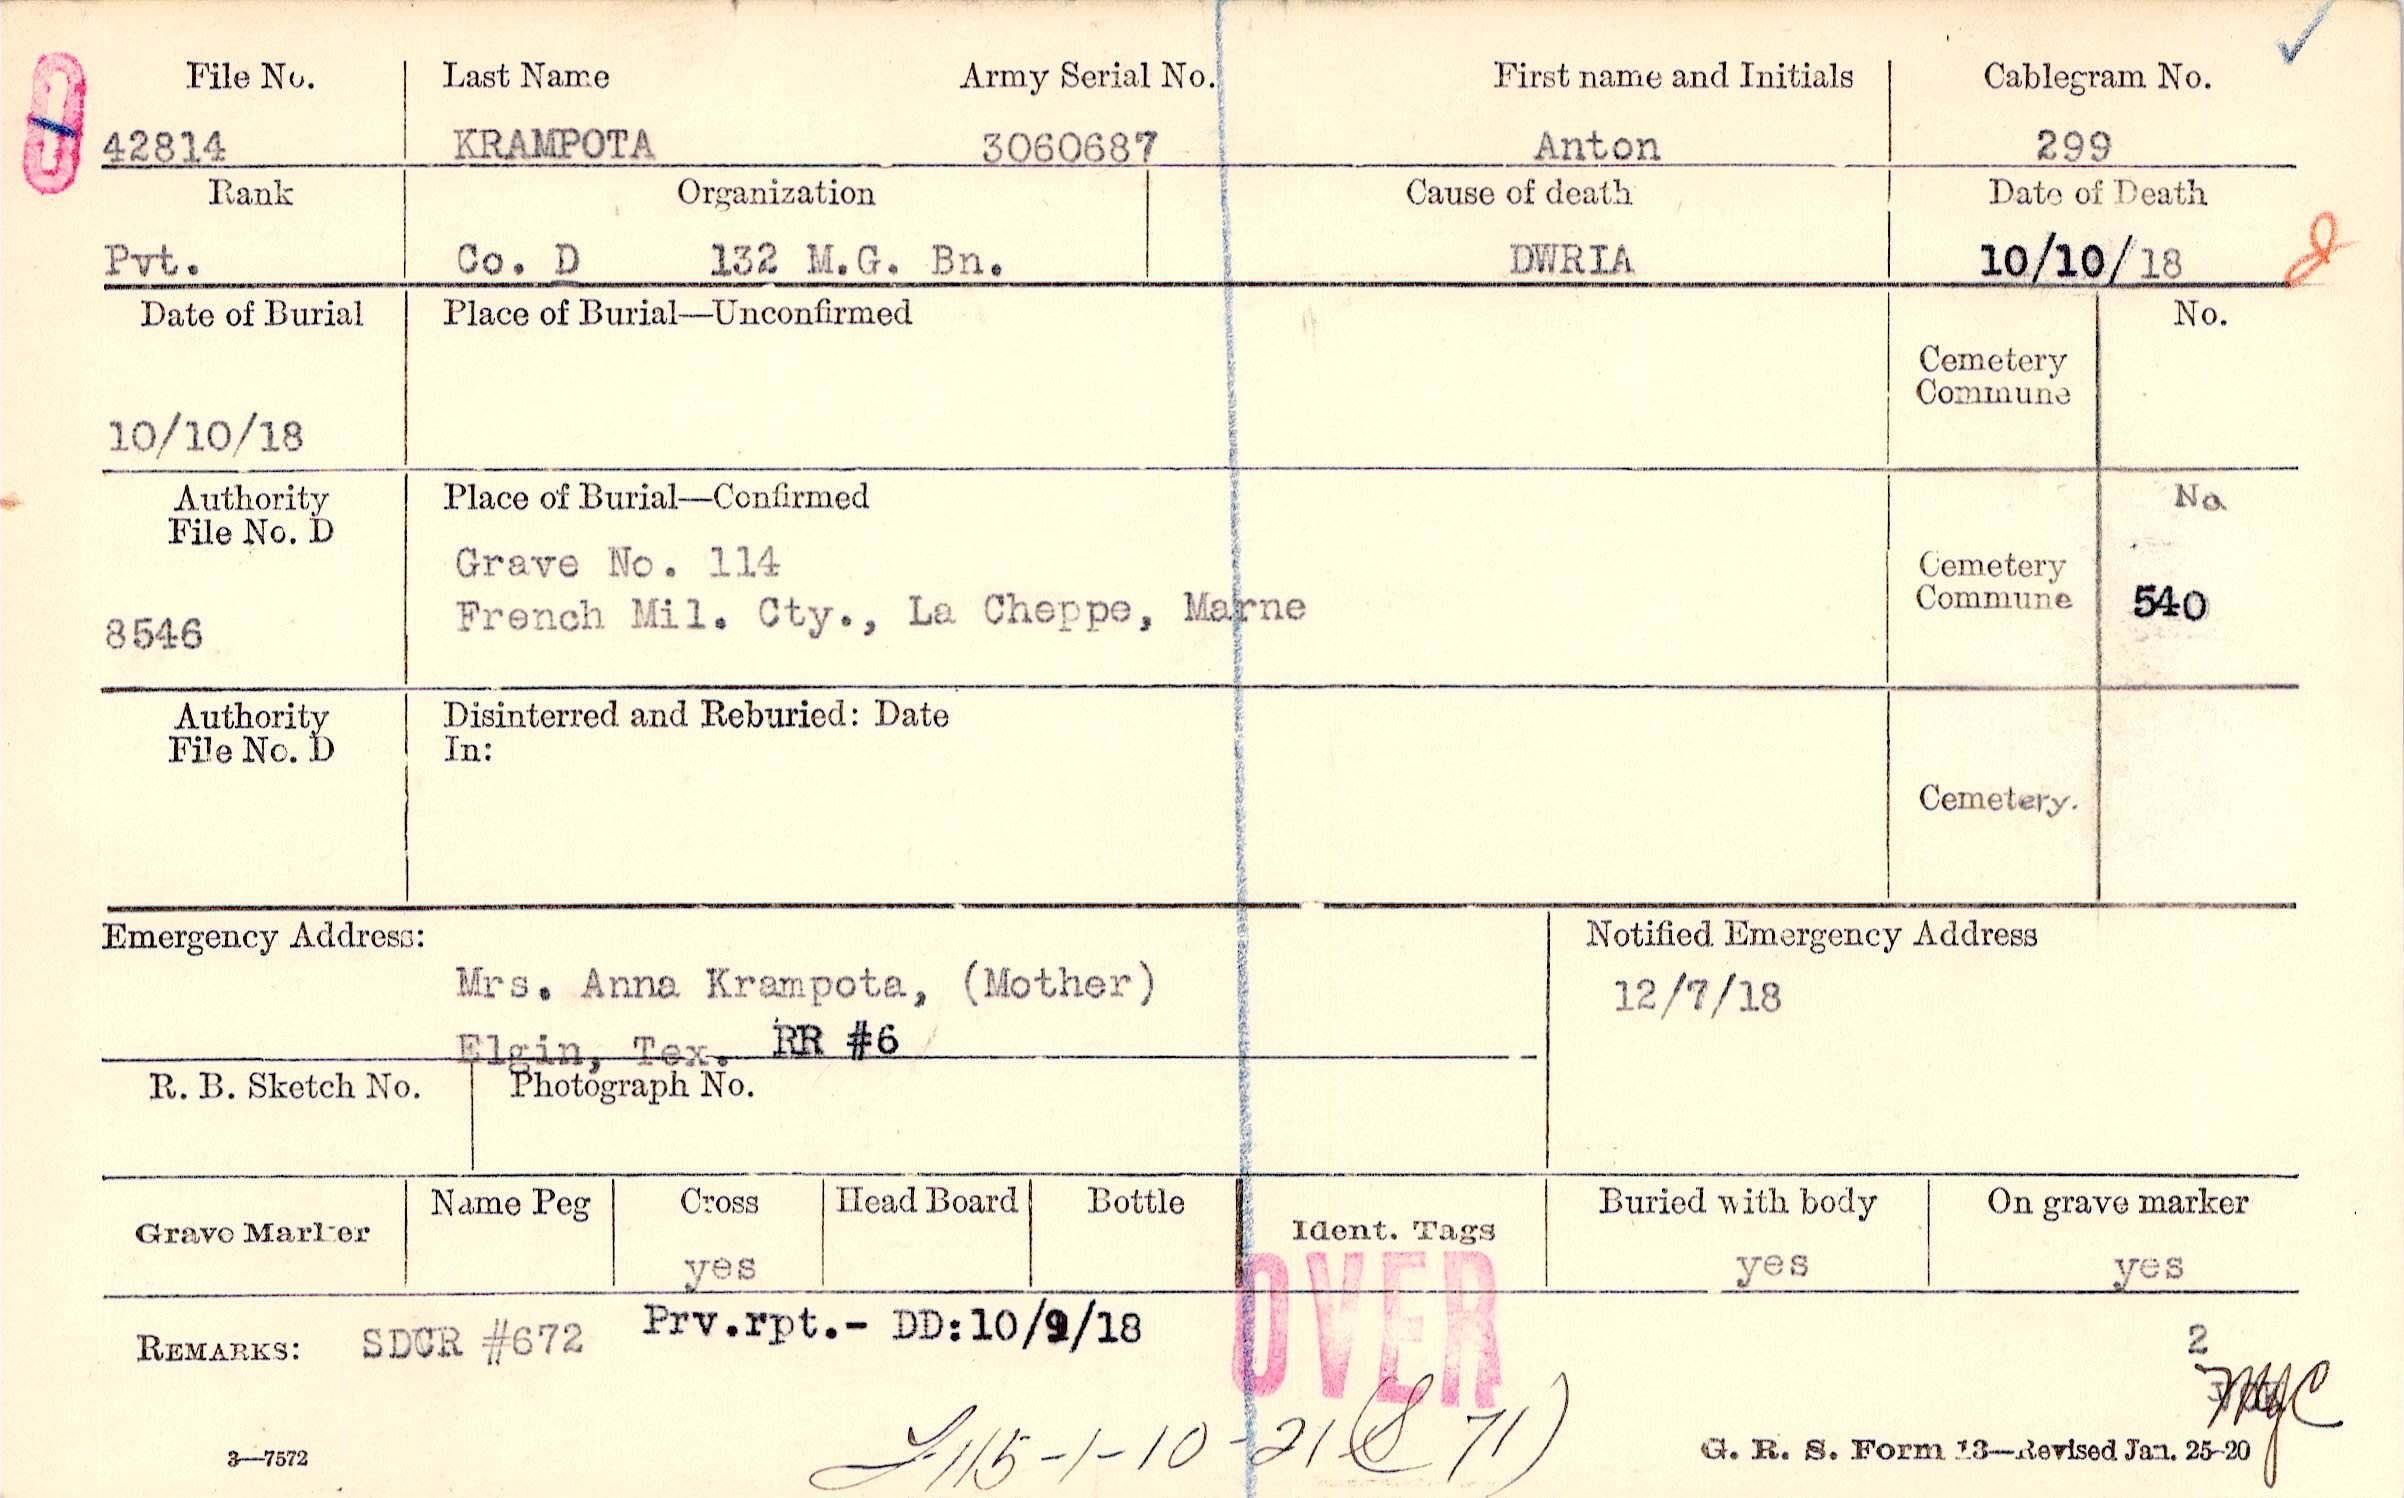 File No. Last Name Army Serial No. First name and Initials Cablegram No.
42814 KRAMPOTA 3060687 Anton 299
Rank Organization Cause of death Date of Death
Pvt. Co. D 132 M.G. Bn. DWRIA 10/10/18
Date of Burial Place of Burial—Unconfirmed No.
Cemetery
Commune
10/10/18
Authority Place of Burial—Confirmed No.
File No. D
Grave No. 114 Cemetery
French Mil. Cty., La Cheppe, Marne Commune 540
8546
Authority Disinterred and Reburied: Date
File No. D In:
Cemetery.
Emergency Address: Notified Emergency Address
Mrs. Anna Krampota, (Mother) 12/7/18
Elgin, Tex. RR #6
R. B. Sketch No. Photograph No.
Name Peg Cross Head Board Bottle Buried with body On grave marker
Grave Marker Ident. Tags
yes yes yes
OVER
REMARKS: SDCR #672 Prv.rpt.- DD:10/9/18 2
115-1-10-21 (S 71)
3—7572 G. R. S. Form 13—Revised Jan. 25-20